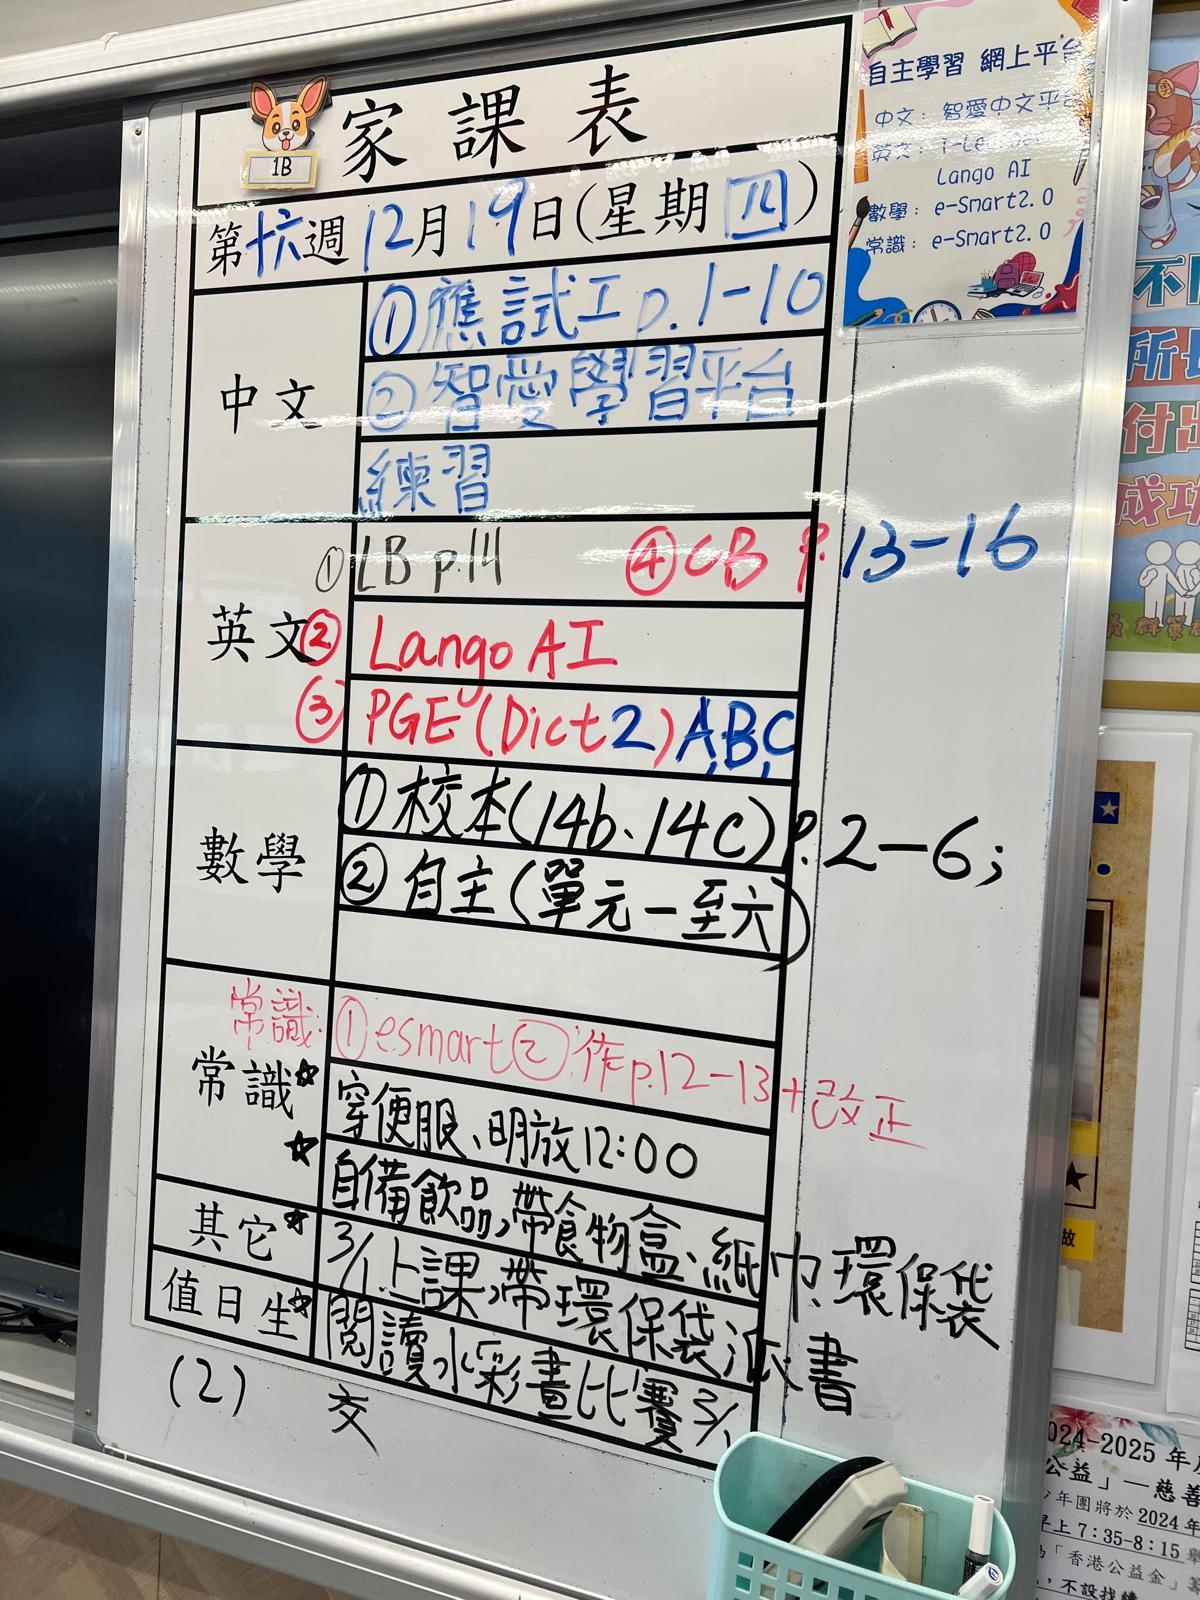 家課表
1B
第十六週 12月19日(星期四)
中文
①應試工 p.1-10
②智愛學習平台
練習
英文
① LB p.14 ④ GB P.13-16
② Lango AI
③ PGE (Dict 2) A,B,C
數學
①校本(14b、14c) P.2-6;
②自主(單元一至六)
常識
常識: ①esmart ②作p.12-13+改正
☆ 穿便服、明放12:00
☆ 自備飲品,帶食物盒、紙巾、環保袋
其它
☆ 3/1上課,帶環保袋派書
值日生
☆ 閱讀水彩畫比賽3/1
(2) 交
自主學習 網上平台
中文: 智愛中文平台
英文:
Lango AI
數學: e-Smart2.0
常識: e-Smart2.0
所
付出
成功
024-2025 年
公益」—慈善
少年團將於 2024 年
早上 7:35-8:15
「香港公益金」
不設找續